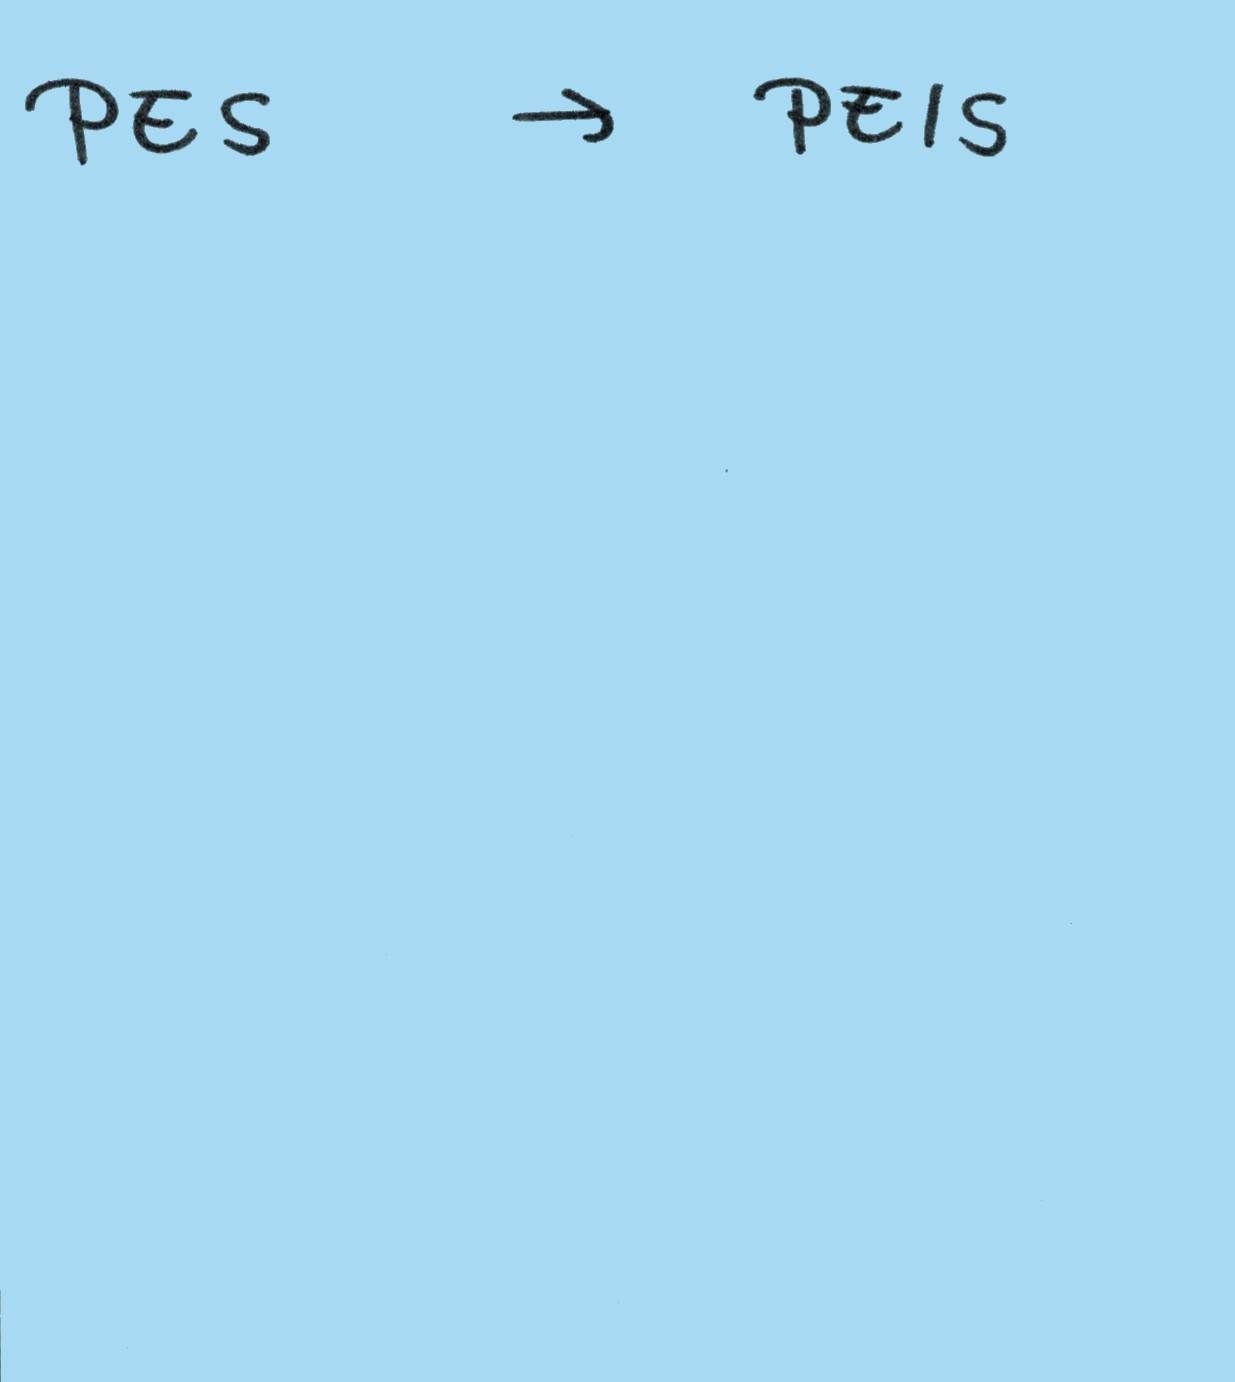 PES → PEIS